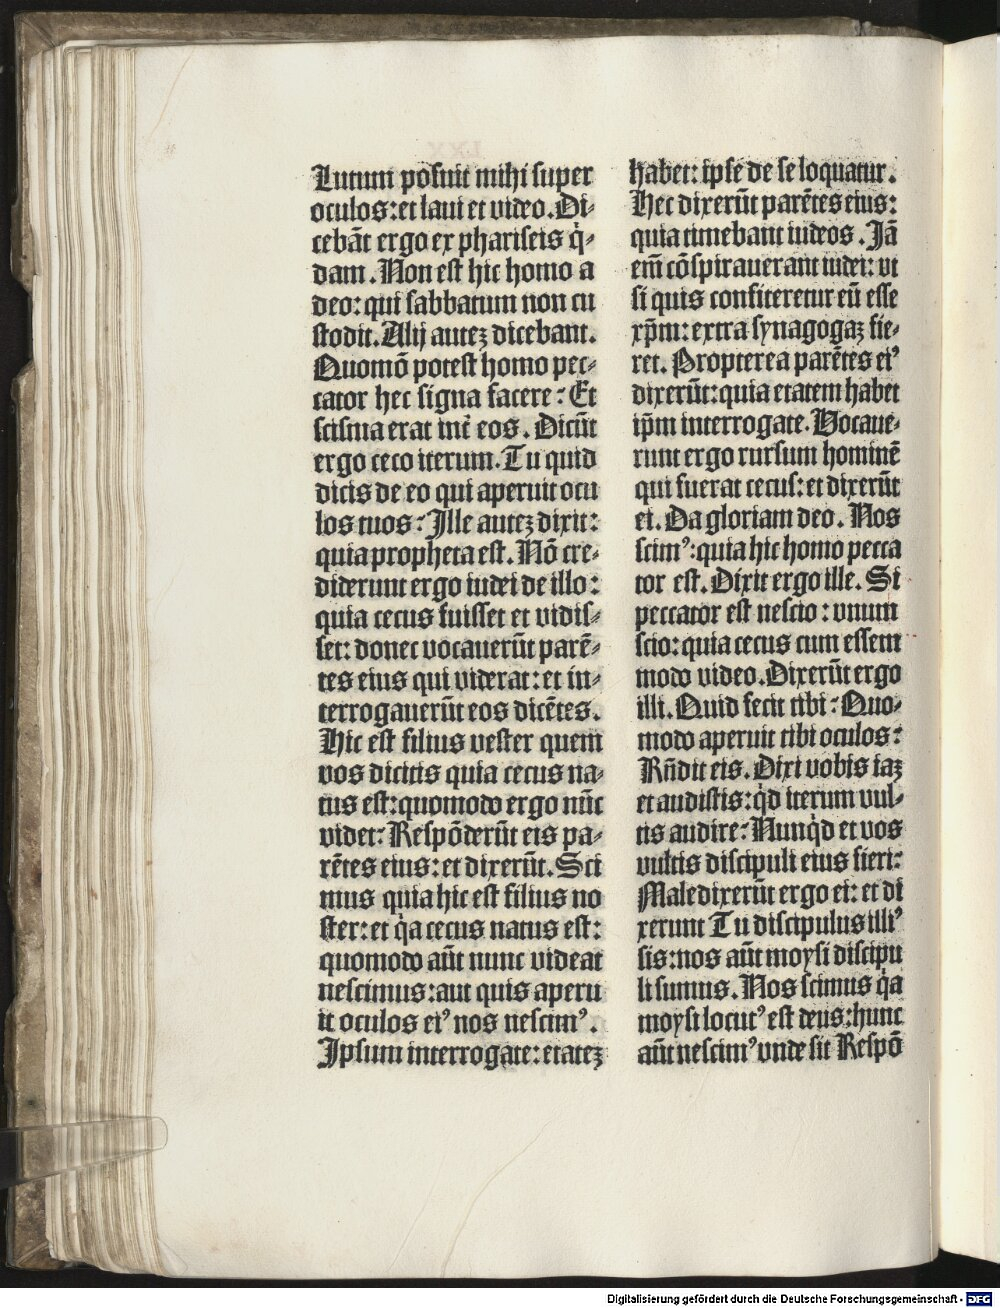 Lutum posuit mihi super
oculos: et laui et video. Di⸗
cebāt ergo ex phariseis q̇⸗
dam. Non est hic homo a
deo: qui sabbatum non cu
stodit. Alij auteꝫ dicebant.
Quomō potest homo pec⸗
cator hec signa facere: Et
scisma erat int̄ eos. Dicūt
ergo ceco iterum. Tu quid
dicis de eo qui aperuit ocu
los tuos: Ille auteꝫ dixit:
quia propheta est. Nō cre⸗
diderunt ergo iudei de illo:
quia cecus fuisset et vidis⸗
set: donec vocauerūt parē⸗
tes eius qui viderat: et in⸗
terrogauerūt eos dicētes.
Hic est filius vester quem
vos dicitis quia cecus na⸗
tus est: quomodo ergo nūc
videt: Respōderūt eis pa⸗
rētes eius: et dixerūt. Sci
mus quia hic est filius no
ster: et q̇a cecus natus est:
quomodo aūt nunc videat
nescimus: aut quis aperu
it oculos eiꝰ nos nescimꝰ.
Ipsum interrogate: etateꝫ
habet: ipse de se loquatur.
Hec dixerūt parētes eius:
quia timebant iudeos. Iā
em̄ cōspirauerant iudei: vt
si quis confiteretur eū esse
xp̄m: extra synagogaꝫ fie⸗
ret. Propterea parētes eiꝰ
dixerūt: quia etatem habet
ip̄m interrogate. Vocaue⸗
runt ergo rursum hominē
qui fuerat cecus: et dixerūt
ei. Da gloriam deo. Nos
scimꝰ: quia hic homo pecca
tor est. Dixit ergo ille. Si
peccator est nescio: vnum
scio: quia cecus cum essem
modo video. Dixerūt ergo
illi. Quid fecit tibi: Quo⸗
modo aperuit tibi oculos:
Rn̄dit eis. Dixi vobis iaꝫ
et audistis: q̇d iterum vul⸗
tis audire: Nunq̇d et vos
vultis discipuli eius fieri:
Maledixerūt ergo ei: et di
xerunt Tu discipulus illiꝰ
sis: nos aūt moysi discipu
li sumus. Nos scimus q̇a
moysi locutꝰ est deus: hunc
aūt nescimꝰ vnde sit Respō
Digitalisierung gefördert durch die Deutsche Forschungsgemeinschaft - DFG